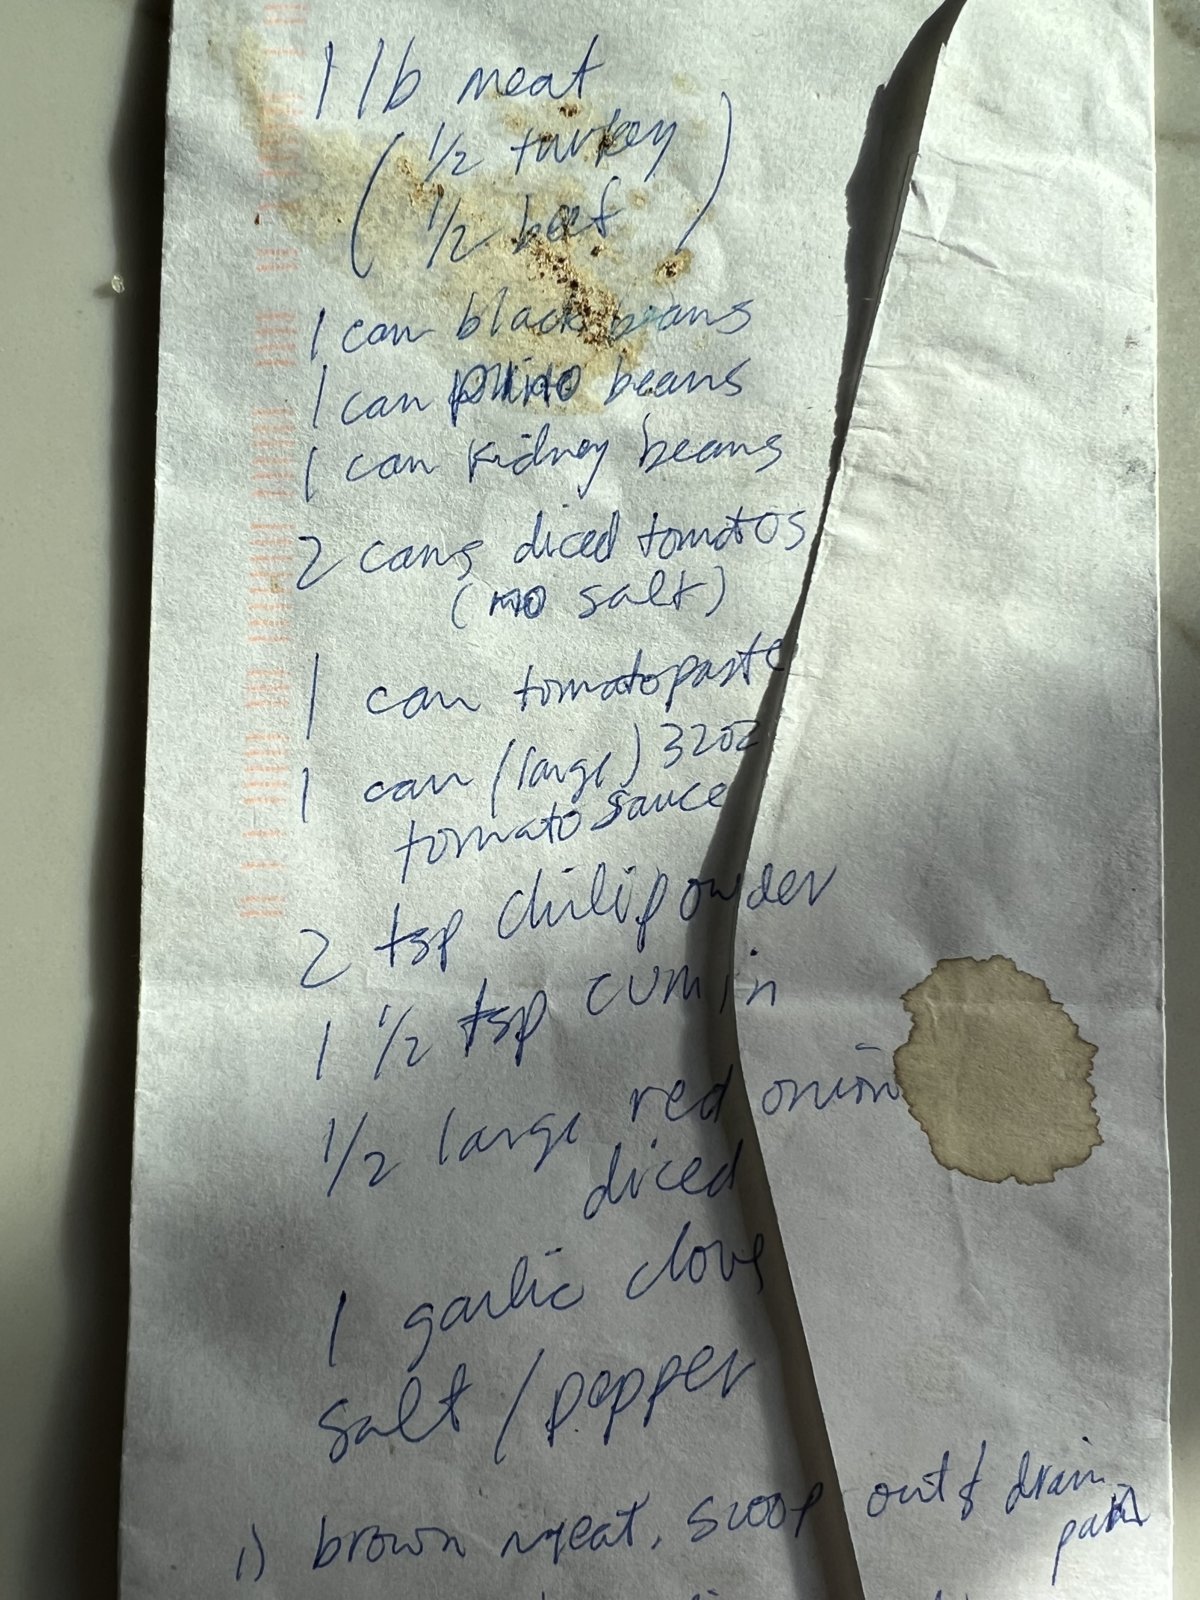 1 lb meat
( 1/2 turkey
1/2 beef )
1 can black beans
1 can pinto beans
1 can kidney beans
2 cans diced tomatos
(no salt)
1 can tomato paste
1 can (large) 32oz
tomato sauce
2 tsp chili powder
1 1/2 tsp cumin
1/2 large red onion
diced
1 garlic clove
salt / pepper
1) brown meat, scoop out & drain
pan